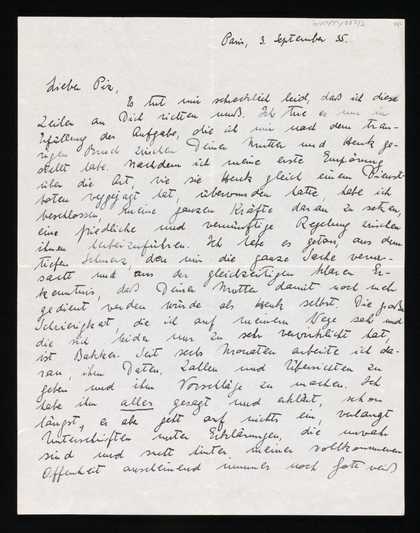 Paris, 3. September 35.
Lieber Pix,
Es tut mir schrecklich leid, daß ich diese
Zeilen an Dich richten muß. Ich tue es nur in
Erfüllung der Aufgabe, die ich mir nach dem trau-
rigen Bruch zwischen Deiner Mutter und Henk ge-
stellt habe. Nachdem ich meine erste Empörung
über die Art, wie sie Henk gleich einem Dienst-
boten weggejagt hat, überwunden hatte, habe ich
beschlossen, meine ganzen Kräfte daran zu setzen,
eine friedliche und vernünftige Regelung zwischen
ihnen herbeizuführen. Ich habe es getan, aus dem
tiefen Schmerz, den mir die ganze Sache verur-
sacht und aus der gleichzeitigen klaren Er-
kenntnis, daß Deiner Mutter damit noch mehr
gedient werden würde als Henk selbst. Die große
Schwierigkeit, die ich auf meinem Wege sah und
die sich leider nur zu sehr verwirklicht hat,
ist Bakker. Seit sechs Monaten arbeite ich da-
ran, ihm Daten, Zahlen und Übersichten zu
geben und ihm Vorschläge zu machen. Ich
habe ihm alles gesagt und erklärt, schon
längst, er aber geht auf nichts ein, verlangt
Unterschriften unter Erklärungen, die unwahr
sind und sucht hinter meiner vollkommenen
Offenheit anscheinend immer noch Gott weiß